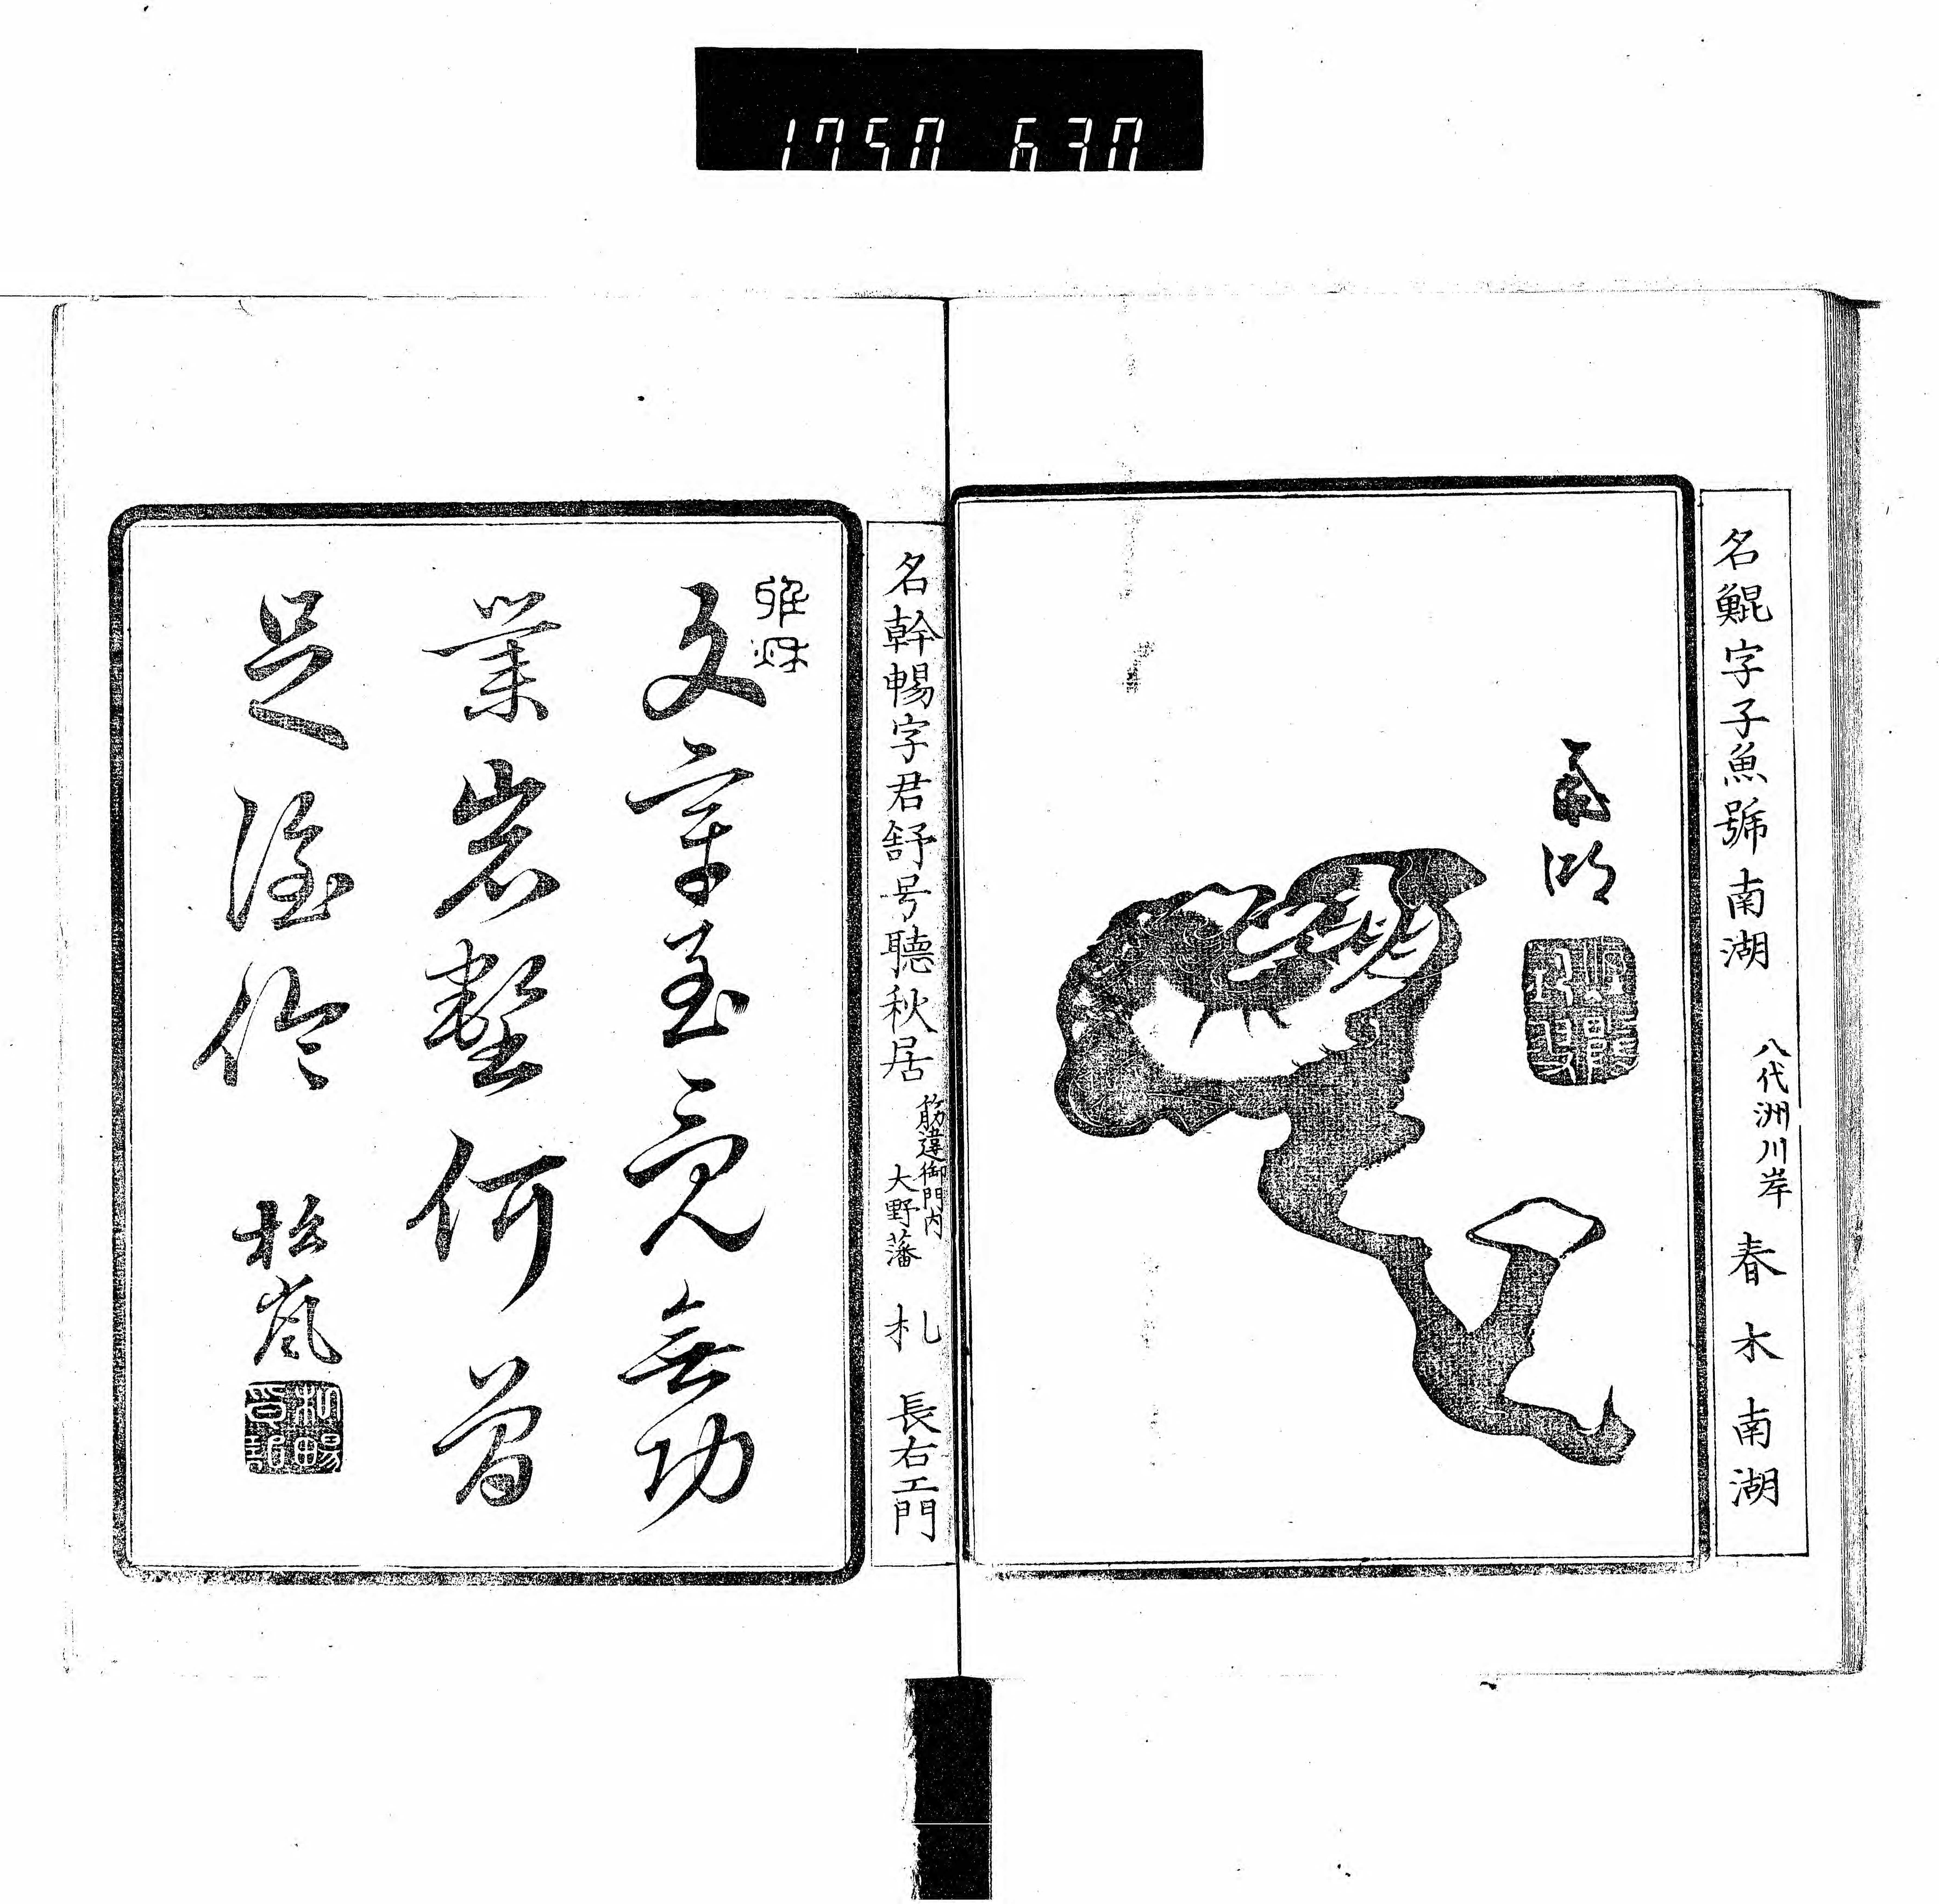 1750 630
名鯤字子魚號南湖
八代洲川岸
春木南湖
名幹暢字君舒号聽秋居
筋違御門内
大野藩
札 長右エ門
文章至竟無功
業岩壑何曽
足隠
松嵐